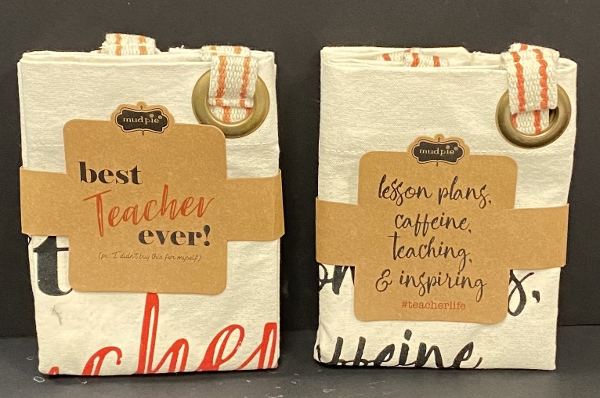 mudpie
best
Teacher
ever!
(ps: I didn't buy this for myself)
t
cher
mudpie
lesson plans,
caffeine,
teaching,
& inspiring
#teacherlife
on s,
ffeine